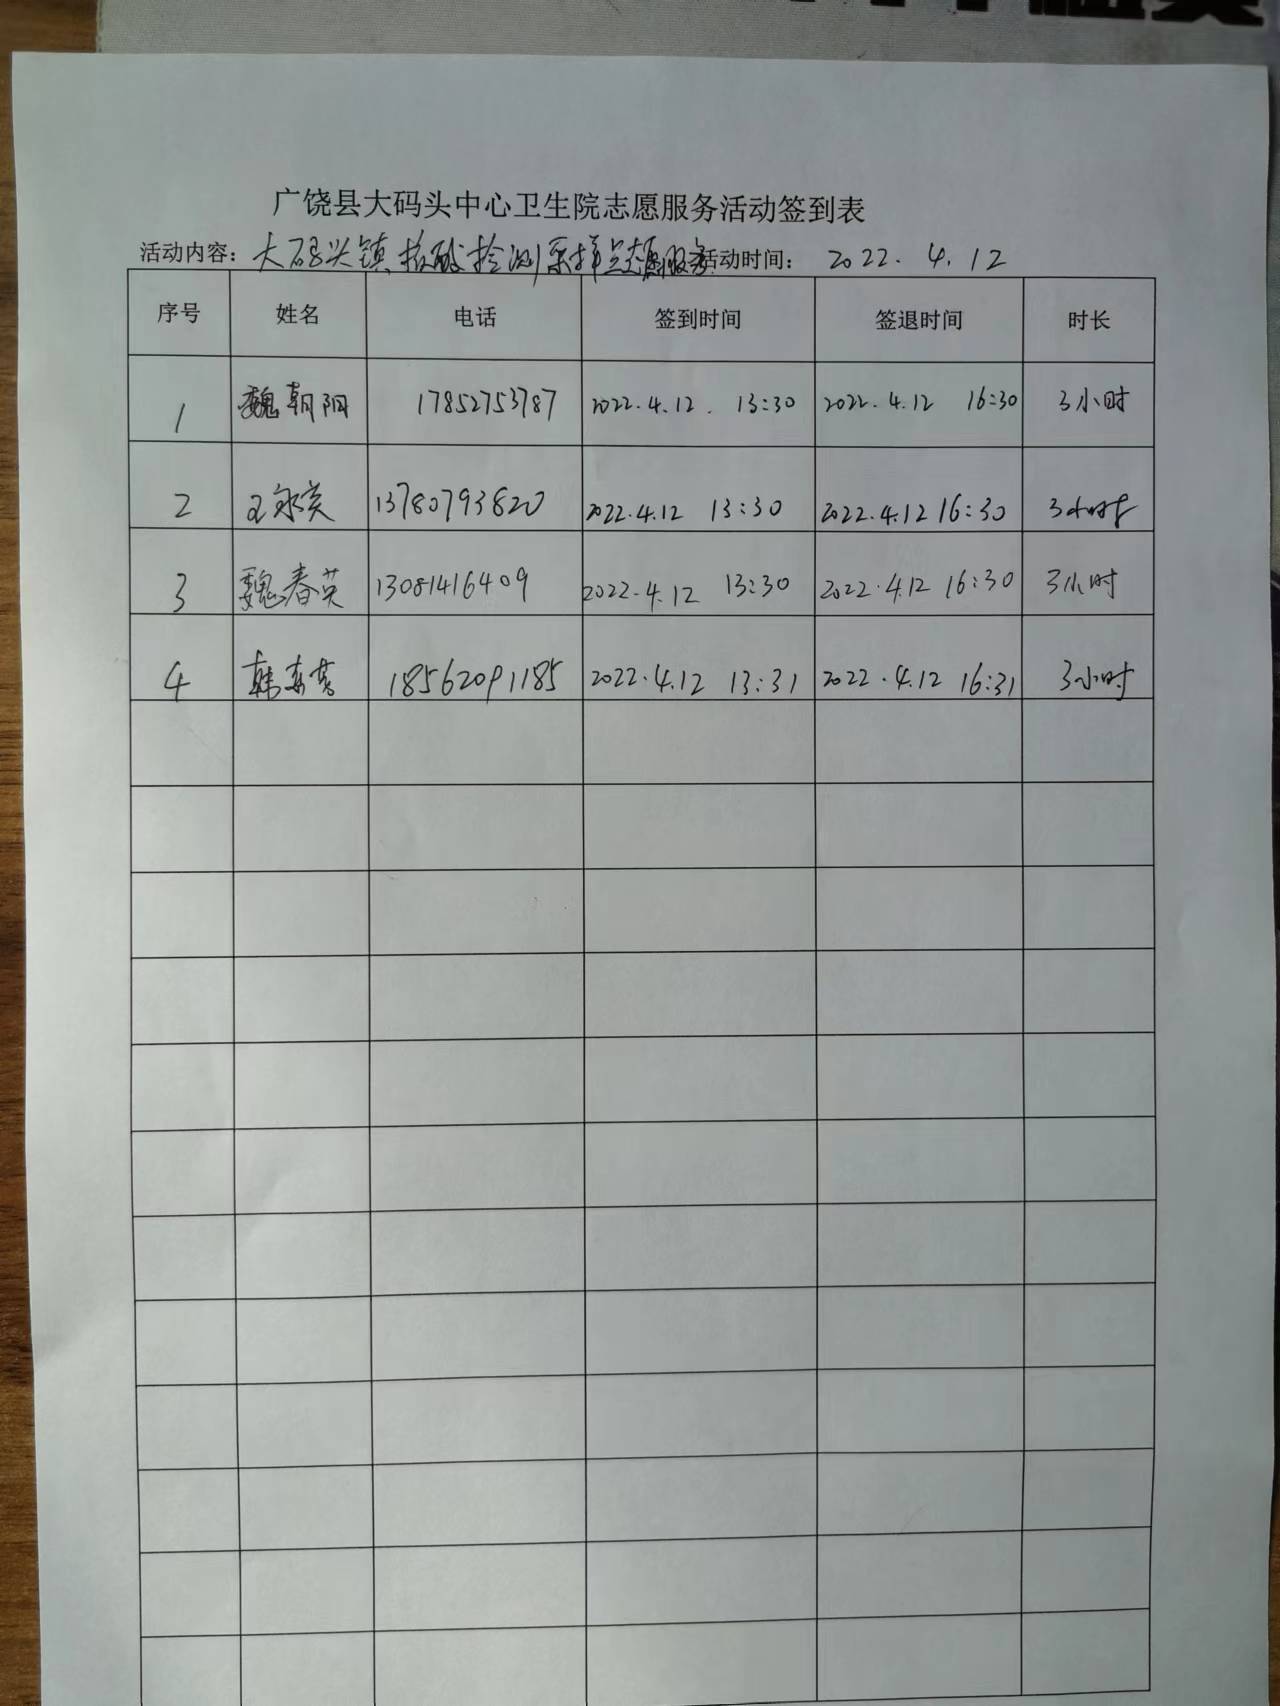 广饶县大码头中心卫生院志愿服务活动签到表
活动内容：大码头镇核酸检测采样点志愿服务 活动时间：2022.4.12
序号 姓名 电话 签到时间 签退时间 时长
1 魏朝阳 17852753787 2022.4.12. 13:30 2022.4.12 16:30 3小时
2 王永英 13780793820 2022.4.12 13:30 2022.4.12 16:30 3小时
3 魏春英 13081416409 2022.4.12 13:30 2022.4.12 16:30 3小时
4 韩 18562091185 2022.4.12 13:31 2022.4.12 16:31 3小时